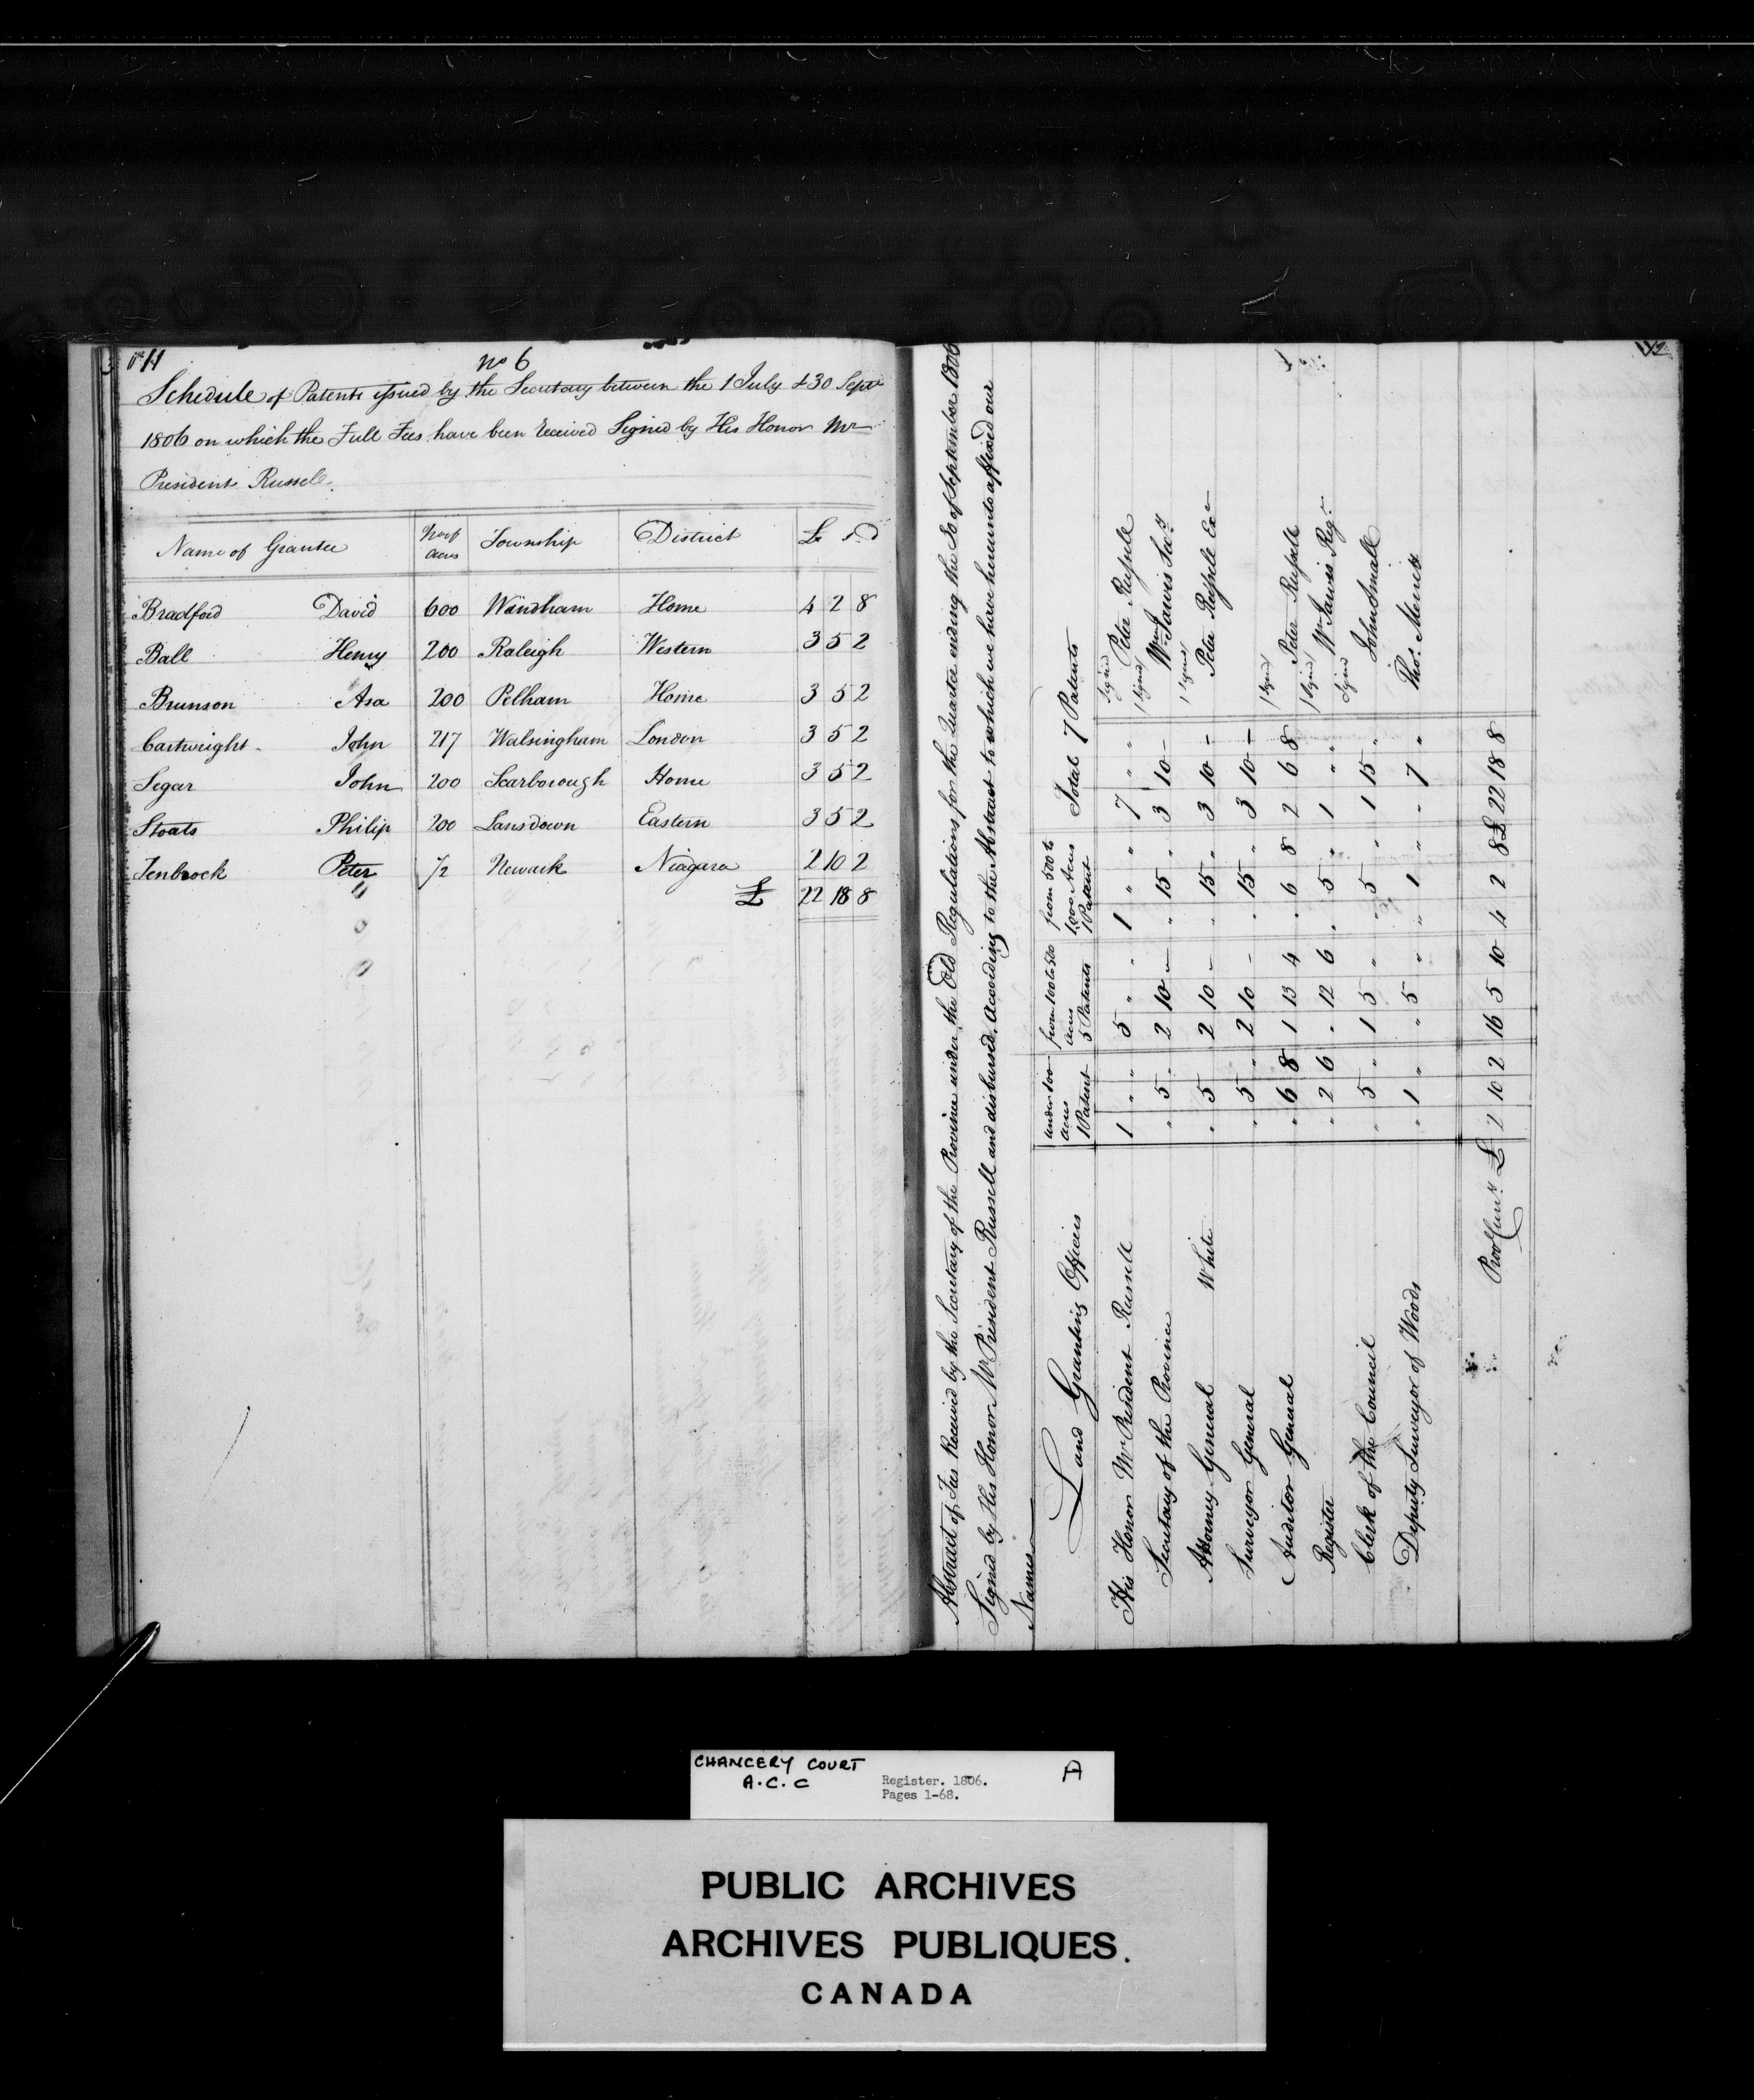 11
No 6
Schedule of Patents issued by the Secretary between the 1 July & 30 Septr
1806 on which the Full Fees have been Received Signed by His Honor Mr
President Russell.
Name of Grantee No of acres Township District £ S D
Bradford David 600 Windham Home 4 2 8
Ball Henry 200 Raleigh Western 3 5 2
Brunson Asa 200 Pelham Home 3 5 2
Cartwright John 217 Walsingham London 3 5 2
Segar John 200 Scarborough Home 3 5 2
Stoats Philip 200 Lansdown Eastern 3 5 2
Tenbrock Peter 1/2 Newark Niagara 2 10 2
£ 22 18 8
Abstract of Fees Received by the Secretary of the Province under the Old Regulations for the Quarter ending the 30 of September 1806
Signed by His Honor Mr President Russell and disbursed, According to the Abstract to which we have hereunto affixed our
Names
Land Granting Officers under 100 acres 1 Patent from 100 to 500 acres 5 Patents from 500 to 1000 Acres 1 Patent Total 7 Patents
His Honor Mr President Russell 1 " " 5 " " 1 " " 7 " " Signed Peter Russell
Secretary of the Province " 5 " 2 10 - " 15 " 3 10 - Signed Wm Jarvis Secy
Attorney General White " 5 " 2 10 - " 15 " 3 10 - Signed Peter Russell Exr
Surveyor General " 5 " 2 10 - " 15 " 3 10 -
Auditor General " 6 8 1 13 4 " 6 8 2 6 8 Signed Peter Russell
Register " 2 6 " 12 6 " 5 " 1 " " Signed Wm Jarvis Reg.
Clerk of the Council " 5 " 1 5 " " 5 " 1 15 " Signed John Small
Deputy Surveyor of Woods " 1 " " 5 " " 1 " " 7 " Thos. Merritt
Prov Curry £ 2 10 2 16 5 10 4 2 8 £ 22 18 8
CHANCERY COURT
A.C.C
Register. 1806.
Pages 1-68.
A
PUBLIC ARCHIVES
ARCHIVES PUBLIQUES.
CANADA